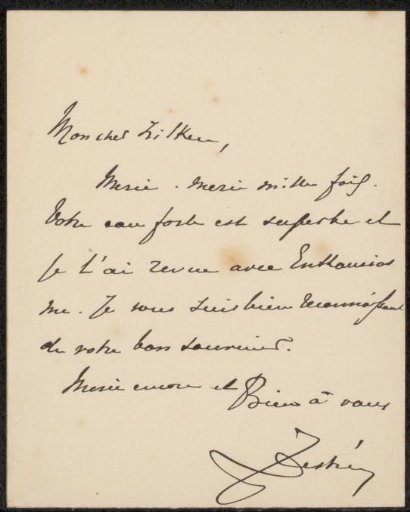 Mon cher Zilken,
Merci. merci mille fois.
Votre eau forte est superbe et
je l'ai revue avec Enthousias
me. Je vous suis bien reconnaissant
de votre bon souvenir.
Merci encore et Bien à vous